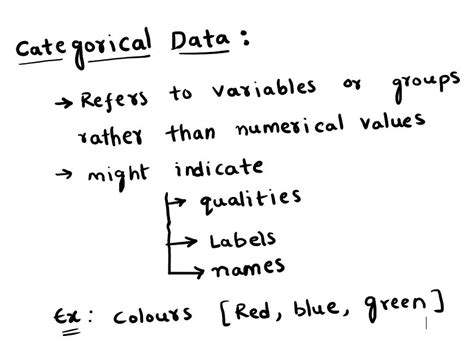 Categorical Data :
→ Refers to variables or groups
rather than numerical values
→ might indicate
→ qualities
→ Labels
→ names
Ex : colours [Red, blue, green]